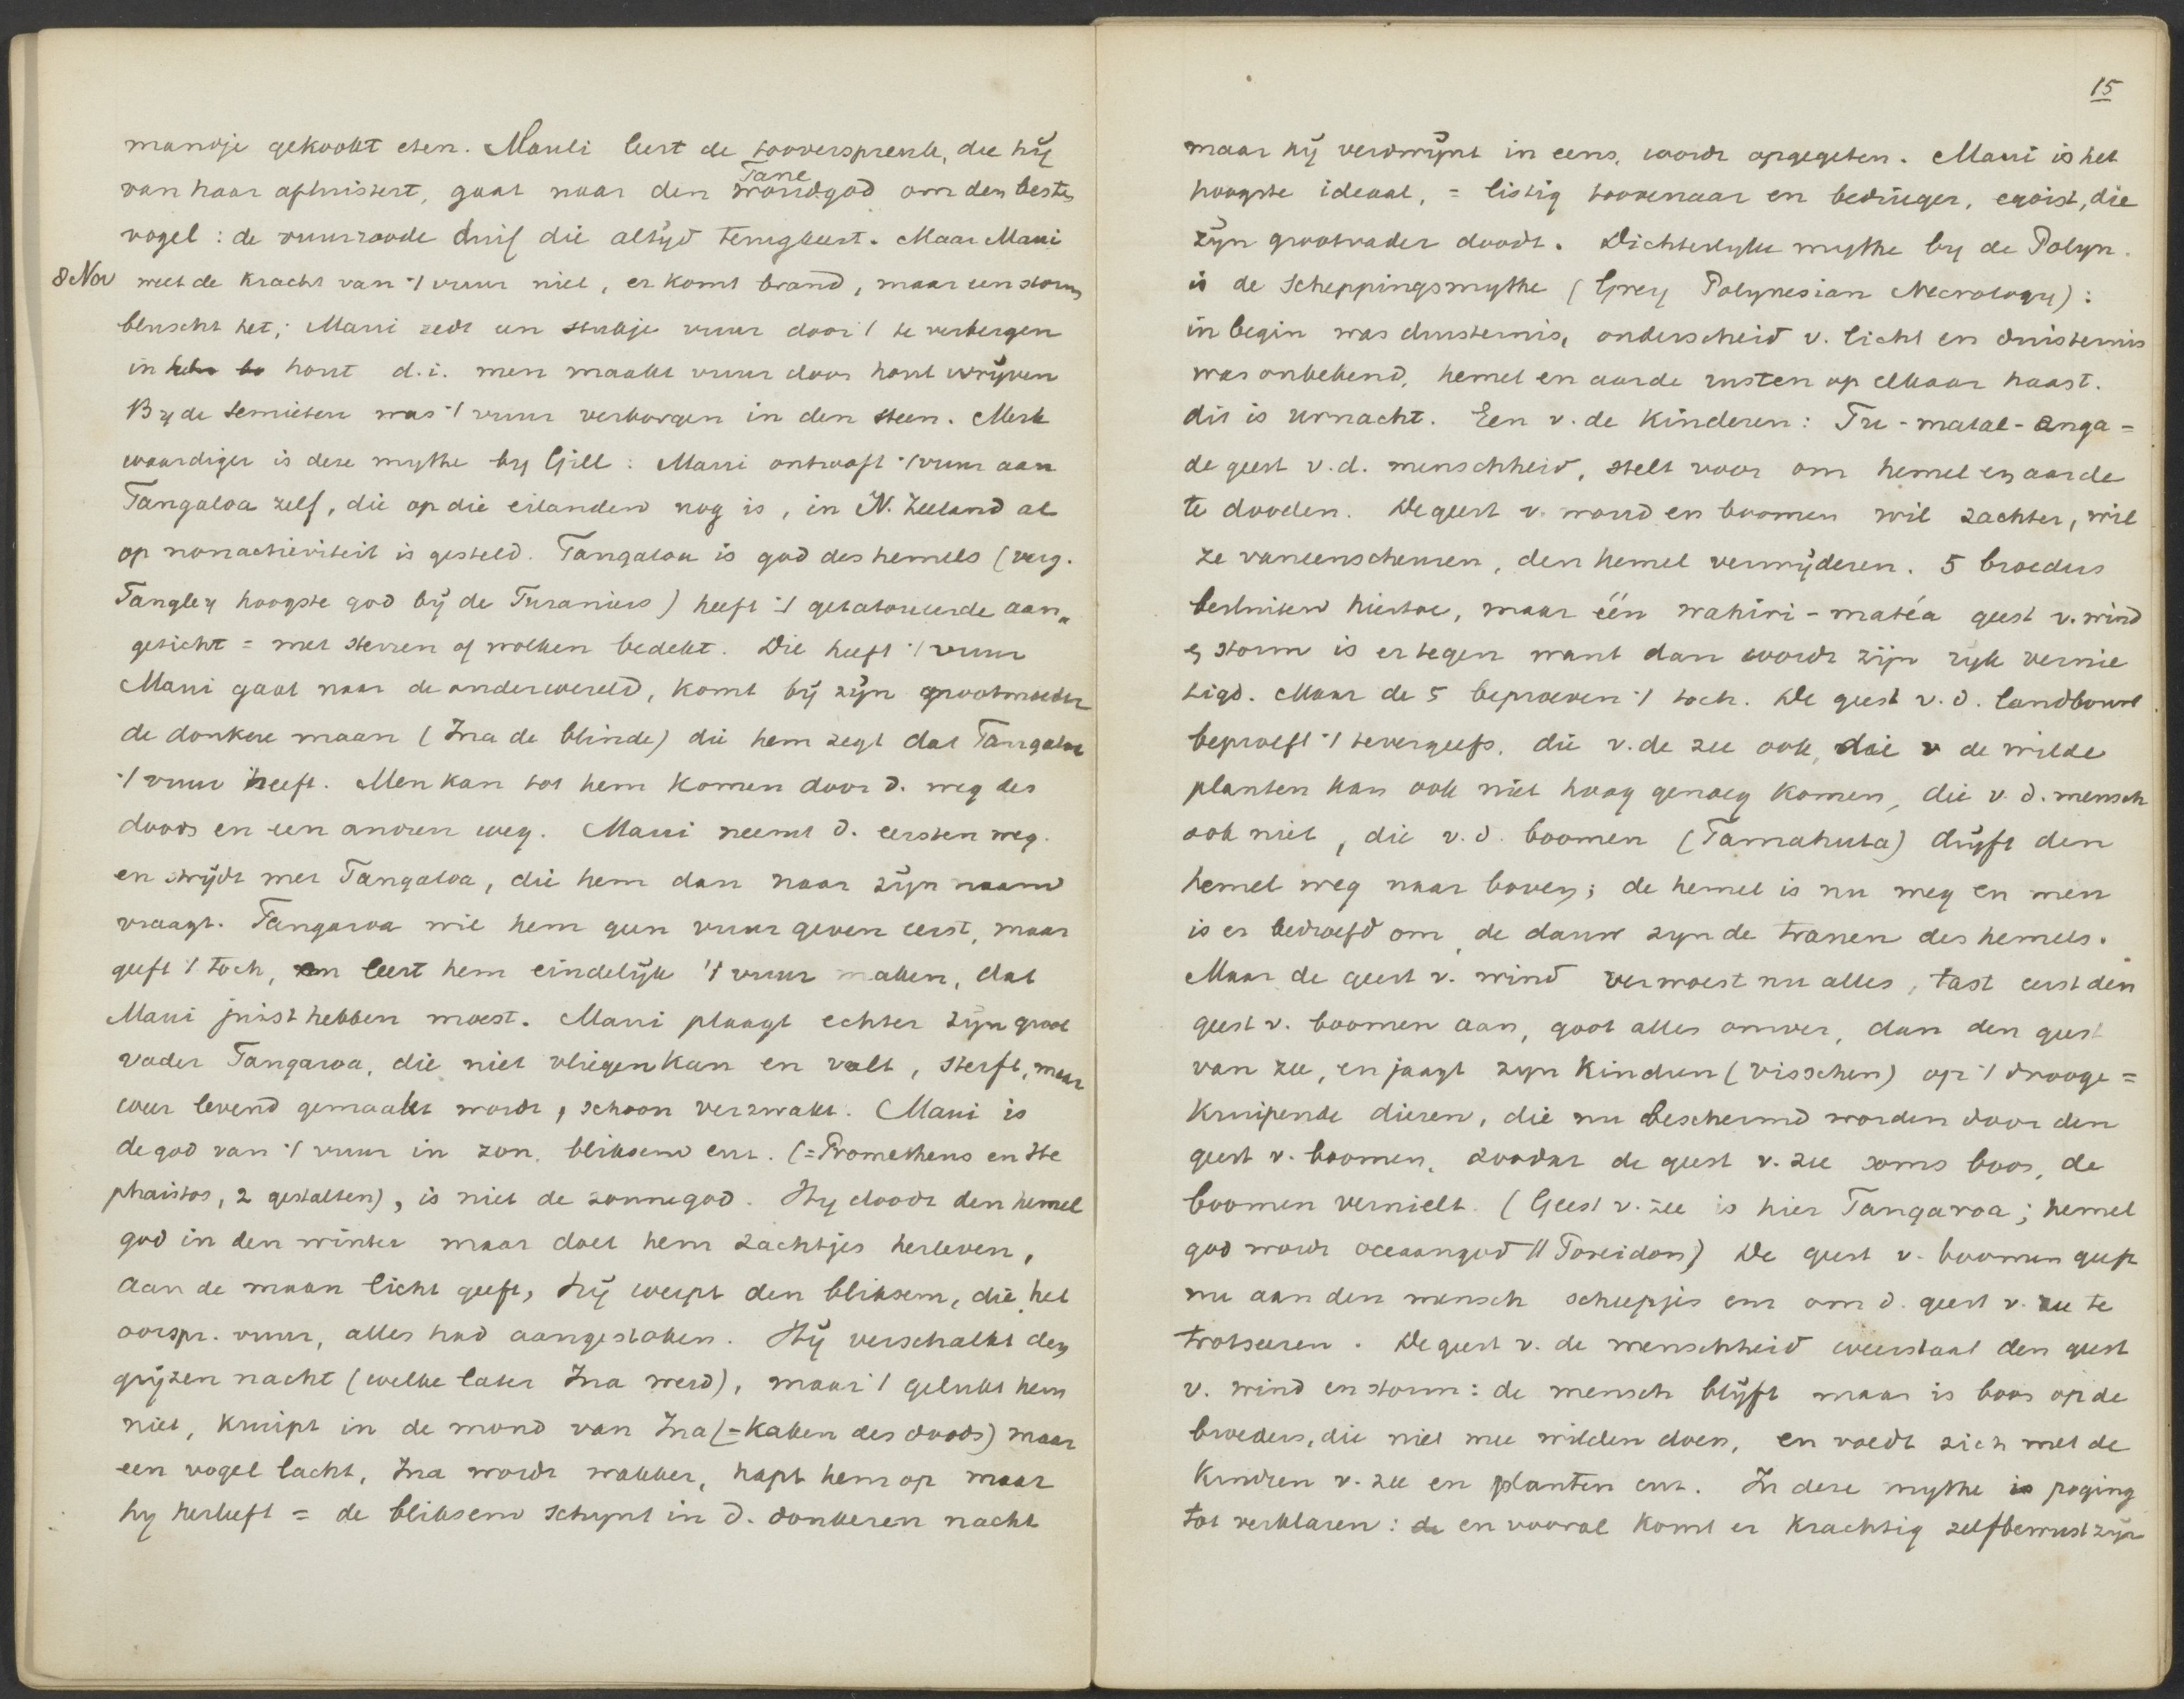 mandje gekookt eten. Maui leert de tooverspreuk, die hij
van haar afluistert, gaat naar den Tane woudgod om den besten
vogel: de vuurroode duif die altijd terugkeert. Maar Maui
8 Nov weet de kracht van 't vuur niet, er komt brand, maar een storm
bluscht het; Maui redt een stukje vuur door 't te verbergen
in hout d.i. men maakt vuur door hout wrijven
By de Semieten was 't vuur verborgen in den steen. Merk
waardiger is deze mythe by Gill: Maui ontrooft 't vuur aan
Tangaloa zelf, die op die eilanden nog is, in N. Zeeland al
op nonactiviteit is gesteld. Tangaloa is god des hemels (verg.
Tangley hoogste god bij de Turaniers) heeft 't getatoueerde aan„
gezicht = met sterren of wolken bedekt. Die heeft 't vuur
Maui gaat naar de onderwereld, komt bij zijn grootmoeder
de donkere maan (Ina de blinde) die hem zegt dat Tangaloa
't vuur heeft. Men kan tot hem komen door d. weg des
doods en een andren weg. Maui neemt d. eersten weg.
en strijdt met Tangaloa, die hem dan naar zijn naam
vraagt. Tangaroa wil hem geen vuur geven eerst, maar
geeft 't toch, en leert hem eindelijk 't vuur maken, dat
Maui juist hebben moest. Maui plaagt echter zijn groot
vader Tangaroa, die niet vliegen kan en valt, sterft, maar
weer levend gemaakt wordt, schoon verzwakt. Maui is
de god van 't vuur in zon, bliksem enz. (= Prometheus en He
phaistos, 2 gestalten), is niet de zonnegod. Hy doodt den hemel
god in den winter maar doet hem zachtjes herleven,
aan de maan licht geeft, hij werpt den bliksem, die het
oorspr. vuur, alles had aangestoken. Hij verschalkt den
grijzen nacht (welke later Ina werd), maar 't gelukt hem
niet, kruipt in de mond van Ina (= kaken des doods) maar
een vogel lacht, Ina wordt wakker, hapt hem op maar
hy herleeft = de bliksem schynt in d. donkeren nacht
15
maar hij verdwijnt in eens, wordt opgegeten. Maui is het
hoogste ideaal, = listig toovenaar en bedrieger, egoist, die
zijn grootvader doodt. Dichterlyke mythe by de Polyn.
is de Scheppingsmythe (Grey Polynesian Necrology):
in begin was duisternis, onderscheid v. licht en duisternis
was onbekend, hemel en aarde rusten op elkaar haast.
dit is urnacht. Een v. de Kinderen: Tu-matal-anga =
de geest v.d. menschheid, stelt voor om hemel en aarde
te dooden. De geest v. woud en boomen wil zachter, wil
ze vaneenscheuren, den hemel verwijderen. 5 broeders
besluiten hiertoe, maar één wahiri-matéa geest v. wind
en storm is er tegen want dan wordt zijn ryk vernie
tigd. Maar de 5 beproeven 't toch. De geest v.d. landbouw
beproeft 't tevergeefs, die v. de zee ook, die v de wilde
planten kan ook niet hoog genoeg komen, die v.d. mensch
ook niet, die v.d. boomen (Tamahuta) drijft den
hemel weg naar boven; de hemel is nu weg en men
is er bedroefd om, de dauw zyn de tranen des hemels.
Maar de geest v. wind verwoest nu alles, tast eerst den
geest v. boomen aan, gooit alles omver, dan den geest
van zee, en jaagt zyn Kindren (visschen) op 't drooge =
kruipende dieren, die nu beschermd worden door den
geest v. boomen, zoodat de geest v. zee soms boos, de
boomen vernielt. (Geest v. zee is hier Tangaroa; hemel
god wordt oceaangod // Poseidon) De geest v. boomen geeft
nu aan den mensch scheepjes enz om d. geest v. zee te
trotseeren. De geest v. de menschheid weerstaat den geest
v. wind en storm: de mensch blijft maar is boos op de
broeders, die niet mee wilden doen, en voedt zich met de
Kindren v. zee en planten enz. In deze mythe is poging
tot verklaren: de en vooral komt er krachtig zelfbewustzijn